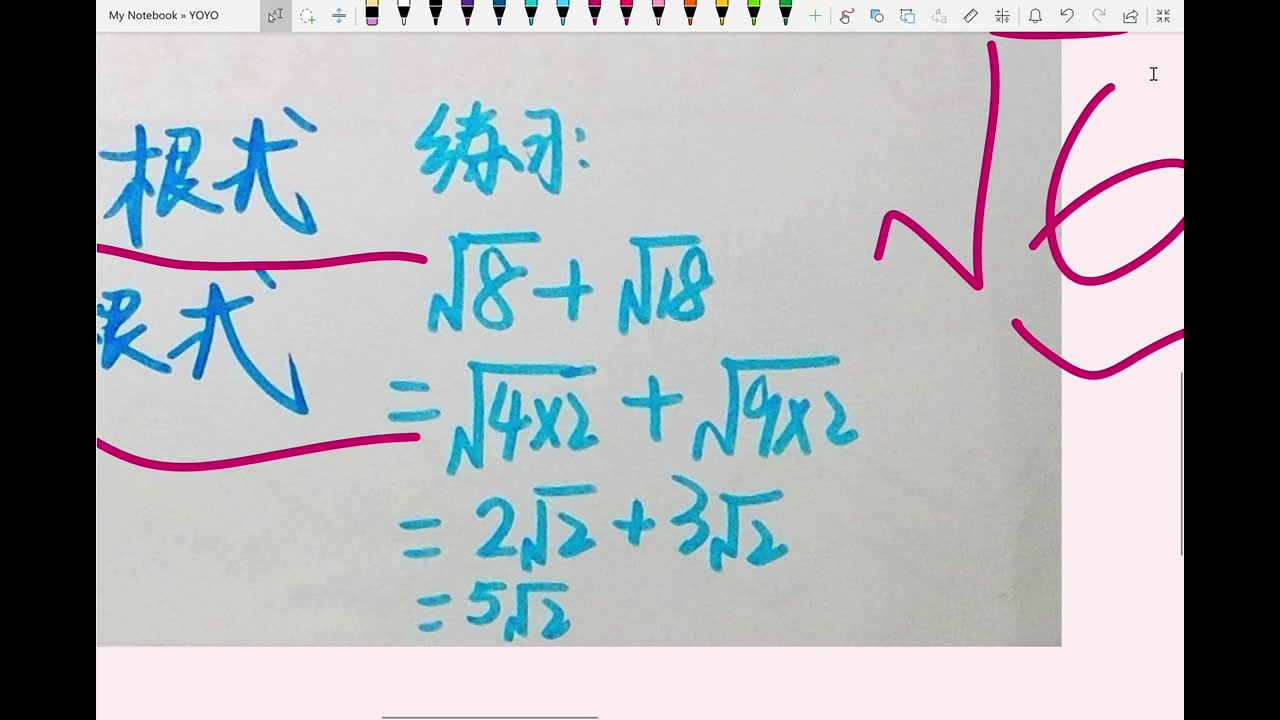 My Notebook » YOYO
根式
根式
练习:
√8 + √18
= √4×2 + √9×2
= 2√2 + 3√2
= 5√2
√6